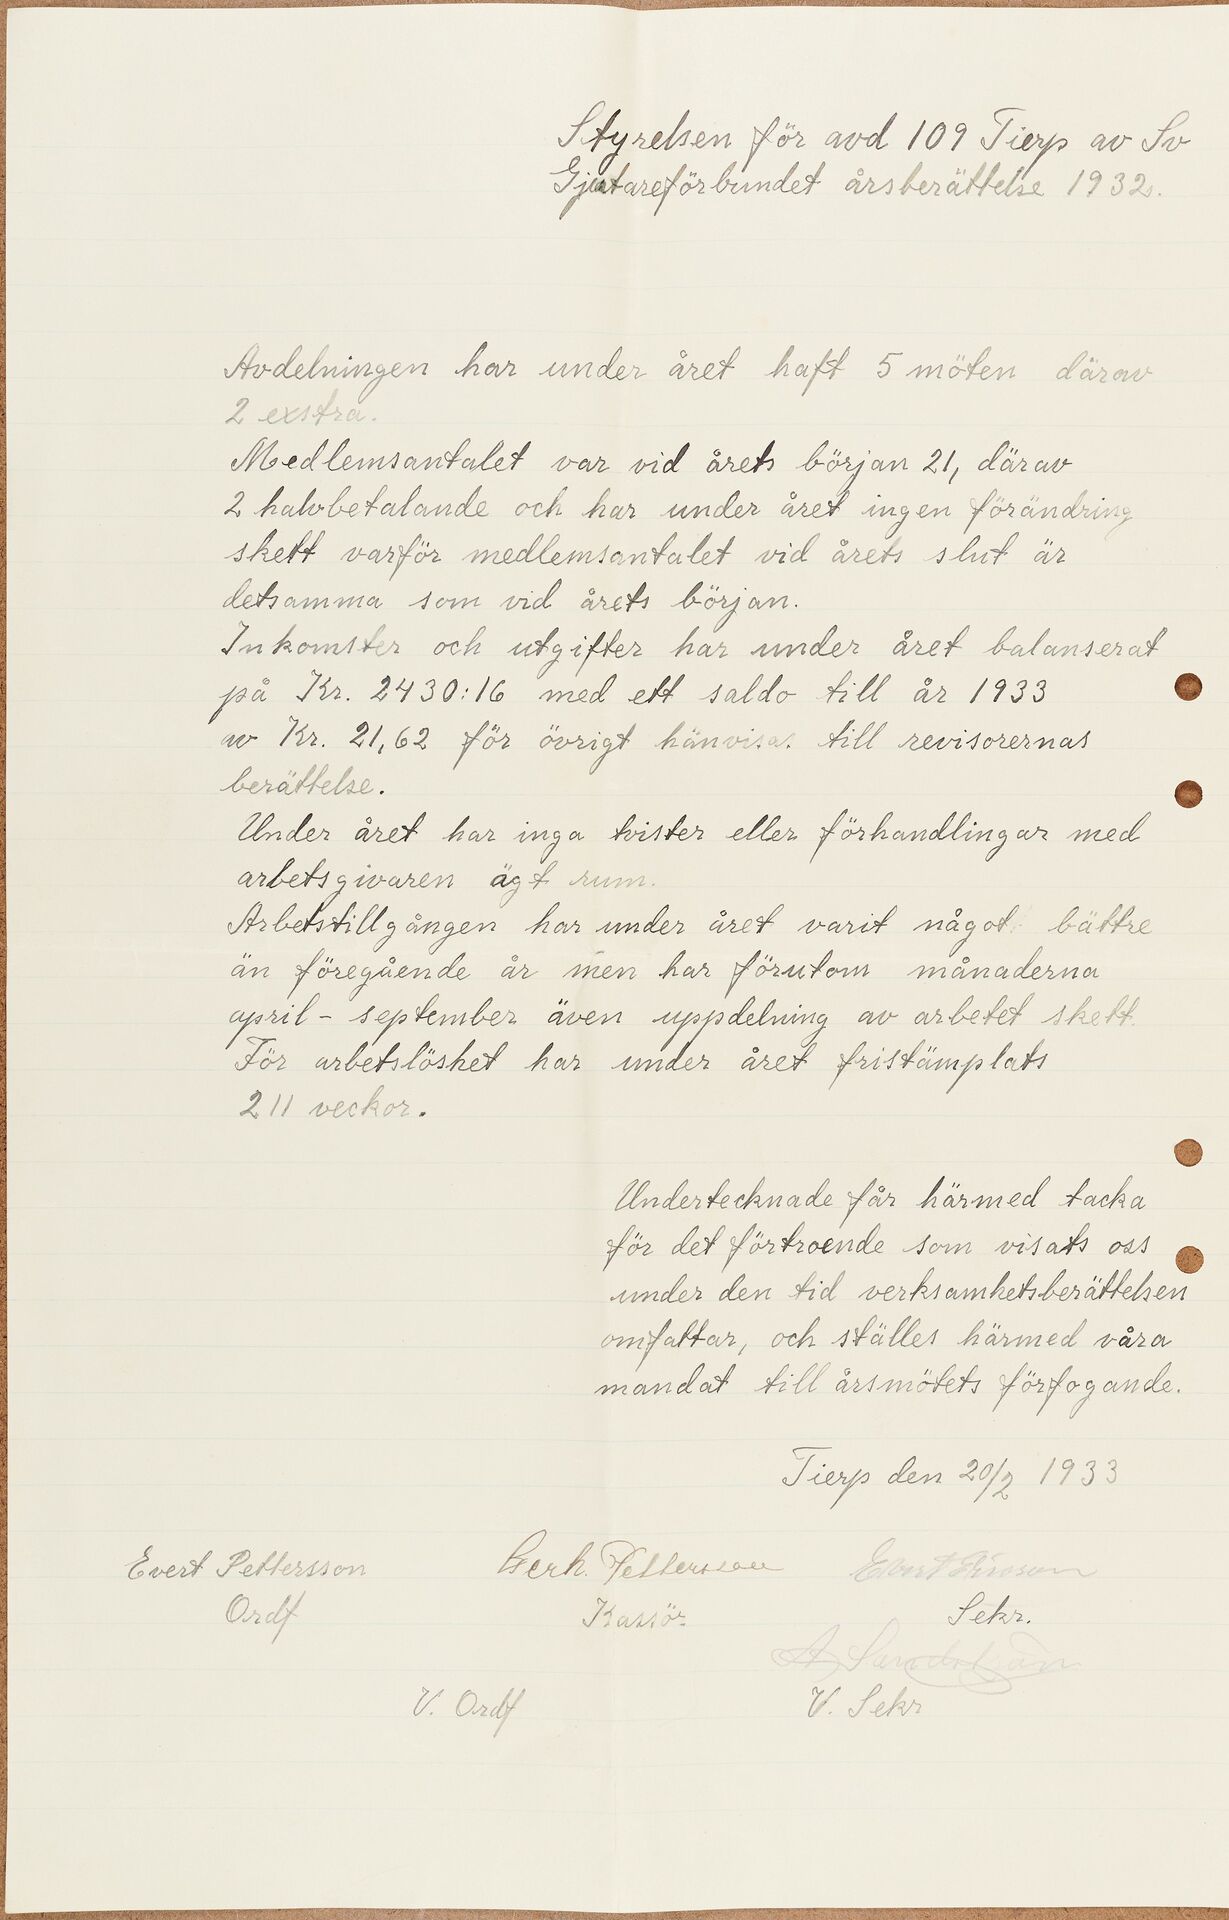 Styrelsen för avd 109 Tierp av Sv
Gjutareförbundet årsberättelse 1932.
Avdelningen har under året haft 5 möten därav
2 exstra.
Medlemsantalet var vid årets början 21, därav
2 halvbetalande och har under året ingen förändring
skett varför medlemsantalet vid årets slut är
detsamma som vid årets början.
Inkomster och utgifter har under året balanserat
på Kr. 2430:16 med ett saldo till år 1933
av Kr. 21,62 för övrigt hänvisas till revisorernas
berättelse.
Under året har inga tvister eller förhandlingar med
arbetsgivaren ägt rum.
Arbetstillgången har under året varit något bättre
än föregående år men har förutom månaderna
april - september även uppdelning av arbetet skett.
För arbetslöshet har under året fristämplats
211 veckor.
Undertecknade får härmed tacka
för det förtroende som visats oss
under den tid verksamhetsberättelsen
omfattar, och ställes härmed våra
mandat till årsmötets förfogande.
Tierp den 20/2 1933
Evert Pettersson Gerh. Pettersson Evert
Ordf Kassör Sekr.
A Sandström
V. Ordf V. Sekr